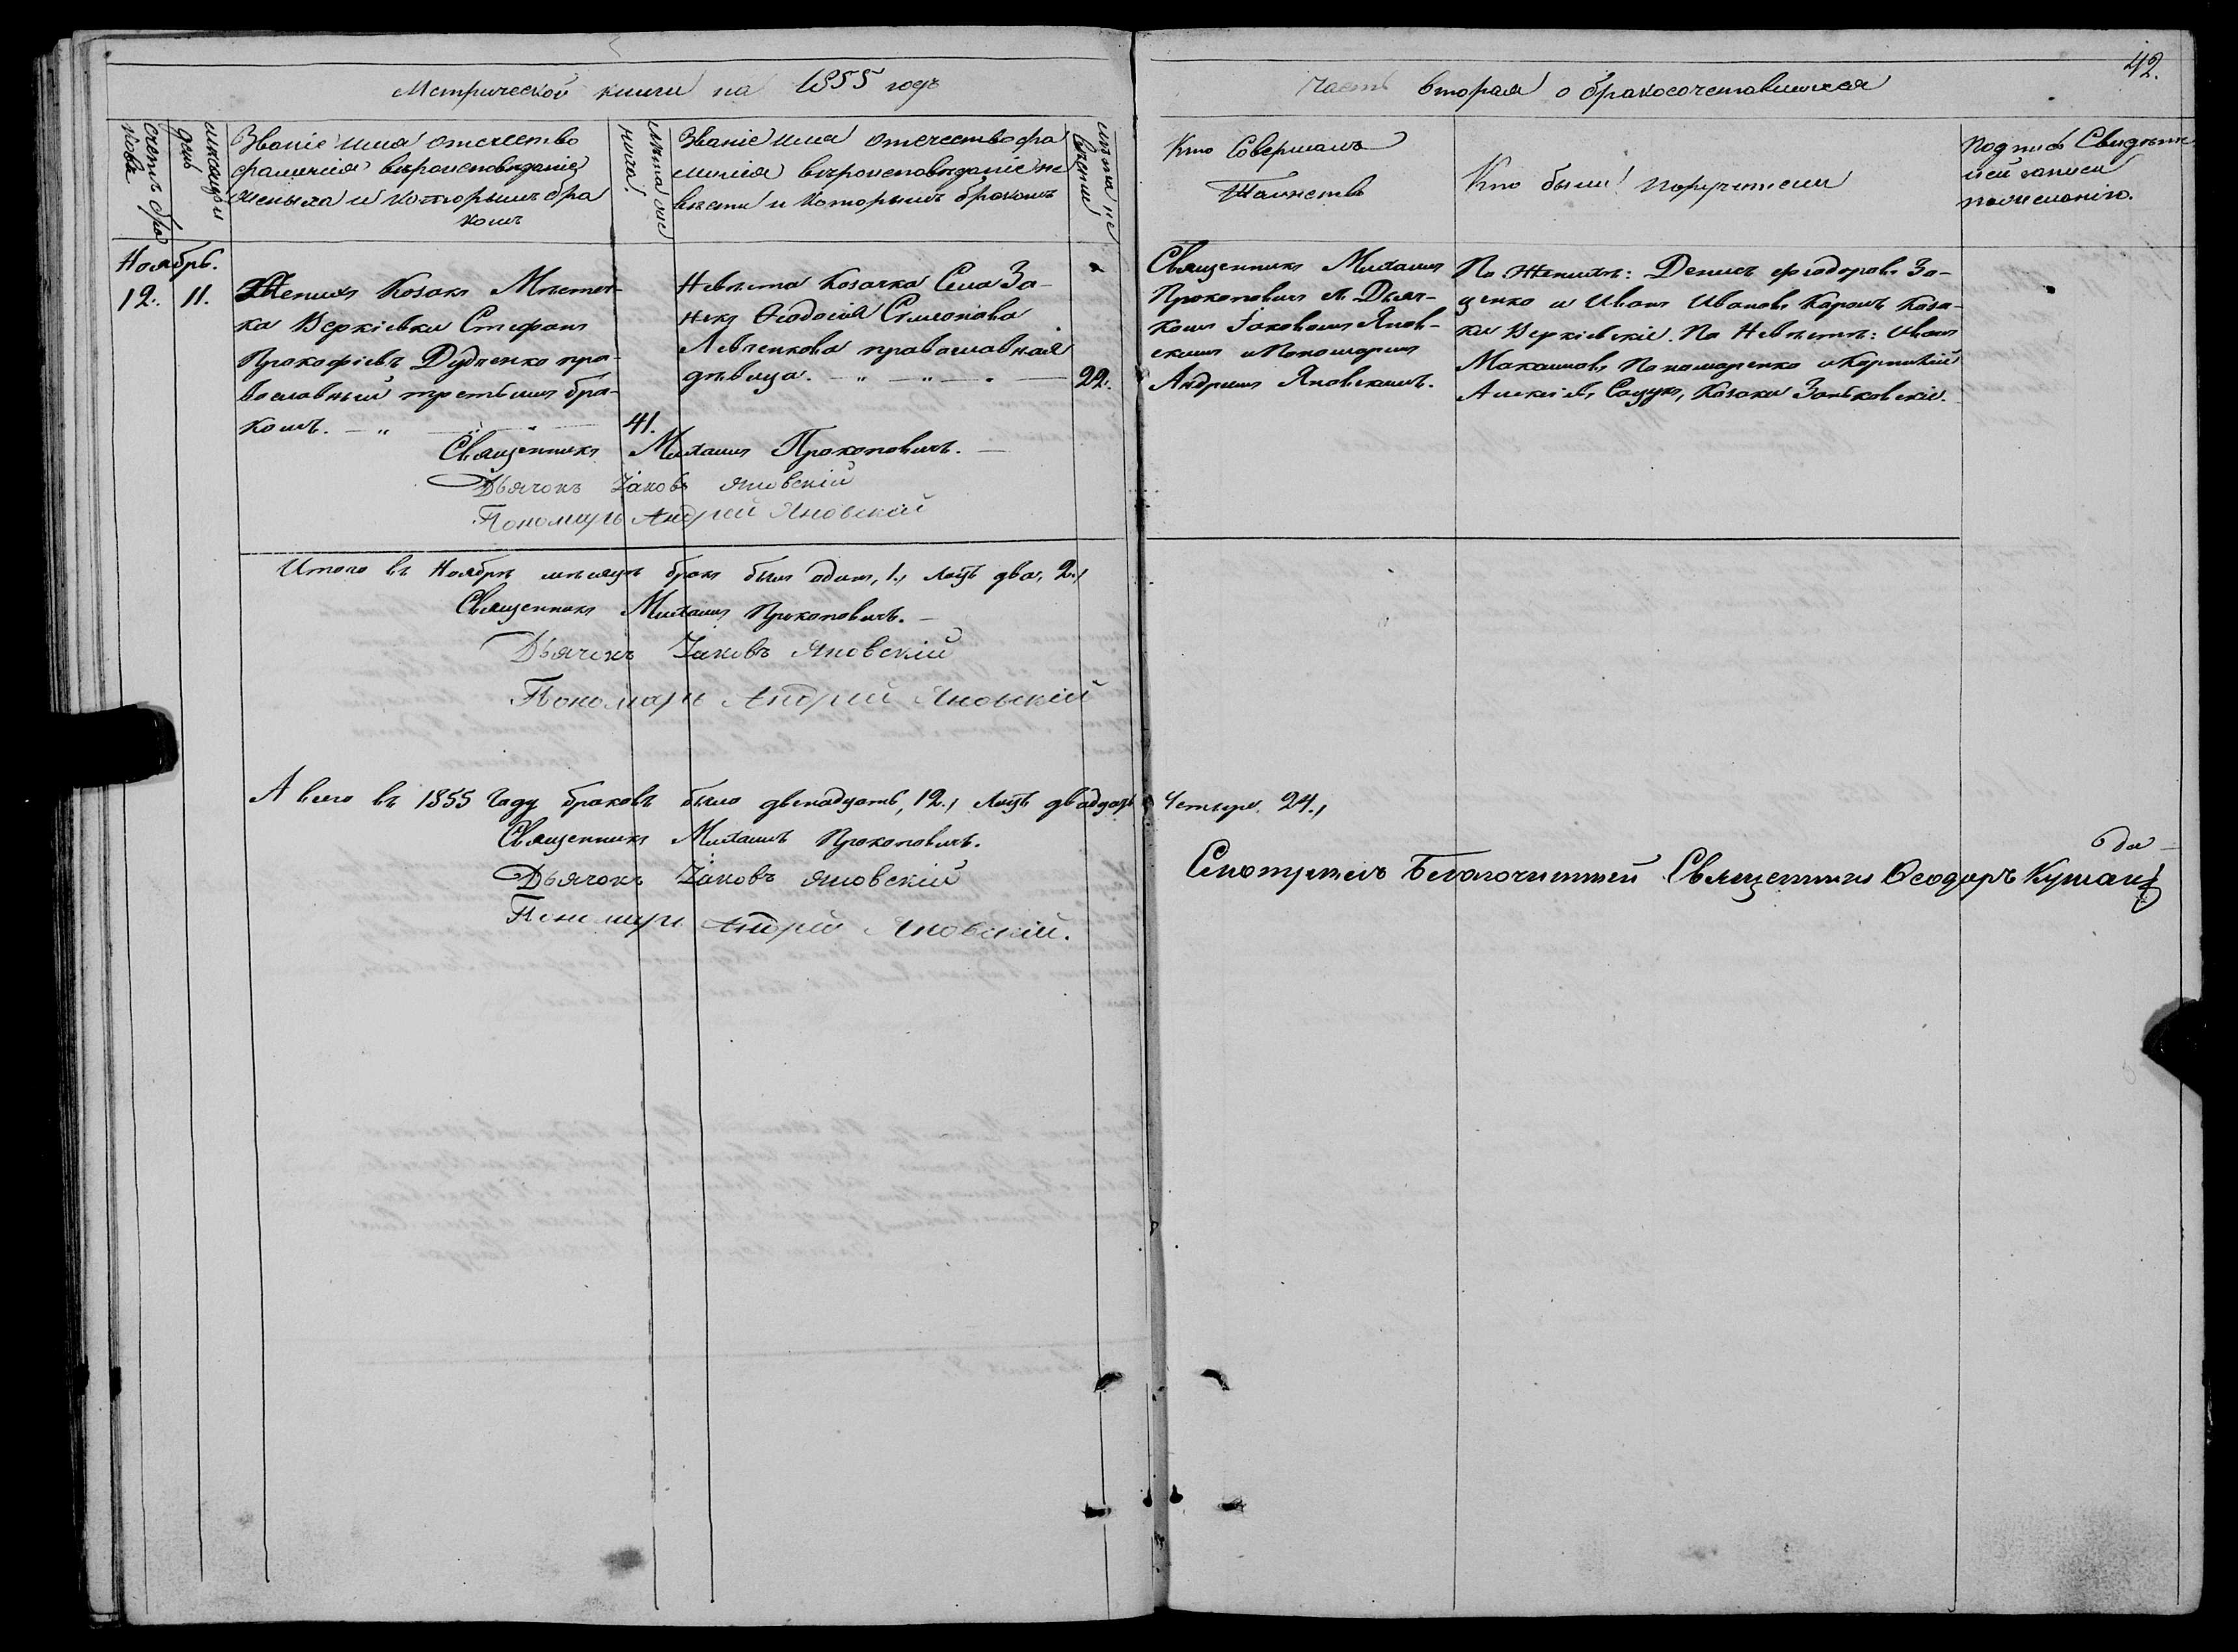 Метрической книги на 1855 годъ
Часть вторая о бракосочетавшихся
42.
Счетъ браковъ
Мѣсяцъ и день
Званіе имя отчество
фамилія вѣроисповѣданіе
жениха и которымъ бра
комъ
Лѣта жениха.
Званіе имя отчество фа
милія вѣроисповѣданіе не
вѣсты и которымъ бракомъ
Лѣта невѣсты
Кто Совершалъ
Таинство
Кто были поручители
Подпись Свидѣте
лей записи
по желанію.
Ноябрь.
12. 11.
Женихъ Козакъ Мѣстеч-
ка Веркіевки Стефанъ
Прокофіевъ Дудченко пра-
вославный третьимъ бра-
комъ. — „ — „ — „ — 41.
Невѣста Козачка Села За-
некъ Ѳеодосія Сѵмеонова
Левченкова православная
дѣвица. — „ — „ — . — 22.
Священникъ Михаилъ
Прокоповичъ съ Дьяч-
комъ Іаковомъ Янов-
скимъ и Пономаремъ
Андреемъ Яновскимъ.
По Женихѣ: Денисъ Феодоровъ За-
ценко и Иванъ Ивановъ Карашъ Коза-
ки Веркіевскіе. По Невѣстѣ: Иванъ
Максимовъ Пономаренко и Корнилій
Алексѣевъ Сацукъ, Козаки Заньковскіе.
Священникъ Михаилъ Прокоповичъ. —
Дьячокъ Іаковъ Яновскій
Пономарь Андрей Яновскій
Итого въ Ноябрѣ мѣсяцѣ бракъ былъ одинъ, 1., лицъ два, 2.,
Священникъ Михаилъ Прокоповичъ. —
Дьячокъ Іаковъ Яновскій
Пономарь Андрей Яновскій
А всего въ 1855 Году браковъ было двенадцать, 12., лицъ двадцать Четыре 24.,
Священникъ Михаилъ Прокоповичъ.
Дьячокъ Іаковъ Яновскій
Пономарь Андрей Яновскій.
Смотрелъ Благочинный Священникъ Ѳеодоръ